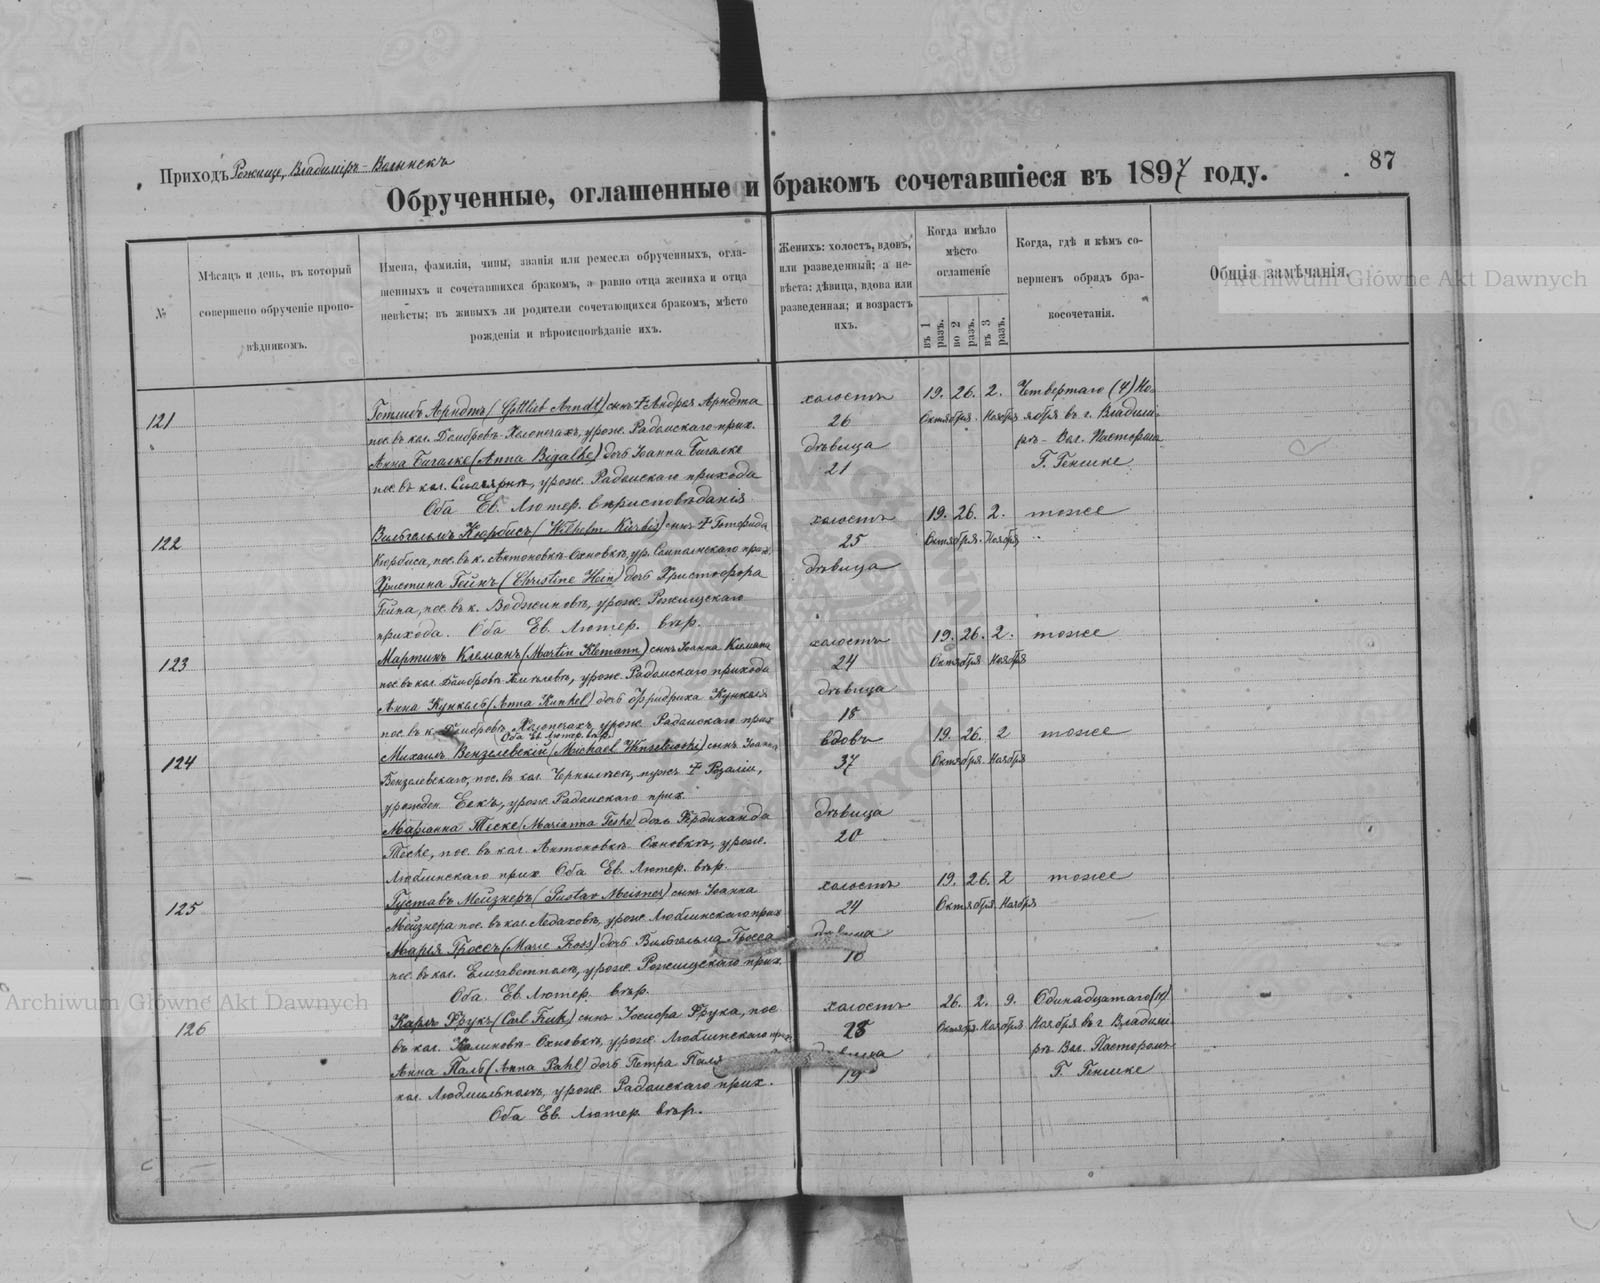 Приходъ Рожище, Владиміръ-Волынскъ
87
Обрученные, оглашенные и бракомъ сочетавшіеся въ 1897 году.
№
Мѣсяцъ и день, въ который
совершено обрученіе пропо-
вѣдникомъ.
Имена, фамиліи, чины, званія или ремесла обрученныхъ, огла-
шенныхъ и сочетавшихся бракомъ, а равно отца жениха и отца
невѣсты; въ живыхъ ли родители сочетающихся бракомъ, мѣсто
рожденія и вѣроисповѣданіе ихъ.
Женихъ: холостъ, вдовъ,
или разведенный; а не-
вѣста: дѣвица, вдова или
разведенная; и возрастъ
ихъ.
Когда имѣло
мѣсто
оглашеніе
въ 1 разъ.
во 2 разъ.
въ 3 разъ.
Когда, гдѣ и кѣмъ со-
вершенъ обрядъ бра-
косочетанія.
Общія замѣчанія.
Archiwum Główne Akt Dawnych
121
Готлибъ Арндтъ (Gottlieb Arndt) сынъ † Андрея Арндта
пос. въ кол. Домбровъ-Холопечахъ, урож. Радомскаго прих.
Анна Бигалке (Anna Bigalke) дочь Іоанна Бигалке
пос. въ кол. урож. Радомскаго прихода
Оба Ев. Лютер. вѣроисповѣданія
холостъ
26
дѣвица
21
19. 26. 2.
Октября. Ноября
Четвертаго (4) Но-
ября въ г. Владими-
ръ-Вол. Пасторомъ
Г. Генике
122
Вильгельмъ Кюрбисъ (Wilhelm Kürbis) сынъ † Готфрида
Кюрбиса, пос. въ к. Антоновкѣ-Охновкѣ, ур. прих.
Христина Гейнъ (Christine Hein) дочь Христофора
Гейна, пос. въ к. Воджиновѣ, урож. Рожищскаго
прихода. Оба Ев. Лютер. вѣр.
холостъ
25
дѣвица
19. 26. 2.
Октября. Ноября
тоже
123
Мартинъ Клеманъ (Martin Klemann) сынъ Іоанна Клемана
пос. въ кол. Домбровѣ урож. Радомскаго прихода
Анна Кункель (Anna Kunkel) дочь Фридриха Кункеля
пос. въ к. Домбровѣ Холопечахъ урож. Радомскаго прих
Оба Ев. Лютер. вѣр.
холостъ
24
дѣвица
18
19. 26. 2.
Октября Ноября
тоже
124
Михаилъ Вензелевскій (Michael Wenzelewski) сынъ Іоанна
Вензелевскаго, пос. въ кол. мужъ † Розаліи,
урожден. Бекъ, урож. Радомскаго прих.
Маріанна Теске (Marianna Teske) дочь Фердинанда
Теске, пос. въ кол. Антоновкѣ Охновкѣ, урож.
Люблинскаго прих. Оба Ев. Лютер. вѣр.
вдовъ
37
дѣвица
20
19. 26. 2
Октября. Ноября
тоже
125
Густавъ Мейзнеръ (Gustav Meisner) сынъ Іоанна
Мейзнера пос. въ кол. Ледаховѣ, урож. Люблинскаго прих
Марія Гроссъ (Marie Gross) дочь Вильгельма Гросса
пос. въ кол. Елизаветполѣ, урож. Рожищскаго прих.
Оба Ев. Лютер. вѣр.
холостъ
24
дѣвица
19. 26. 2
Октября. Ноября
тоже
Archiwum Główne Akt Dawnych
126
Карлъ Фрукъ (Carl Fruk) сынъ Фрука, пос
въ кол. Калиновъ-Охновкѣ, урож. Люблинскаго прих.
Анна Паль (Anna Pahl) дочь Петра Паля
кол. Людмильполѣ, урож. Радомскаго прих.
Оба Ев. Лютер. вѣр.
холостъ
23
дѣвица
19
26. 2. 9.
Октября. Ноября
Одинадцатаго (11)
Ноября въ г. Владимі-
ръ Вол. Пасторомъ
Г. Генике